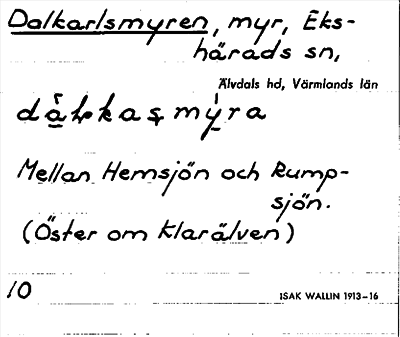 Dalkarlsmyren, myr, Eks-
härads sn,
Älvdals hd, Värmlands län
Mellan Hemsjön och Rump-
sjön.
(Öster om Klarälven)
10
ISAK WALLIN 1913–16